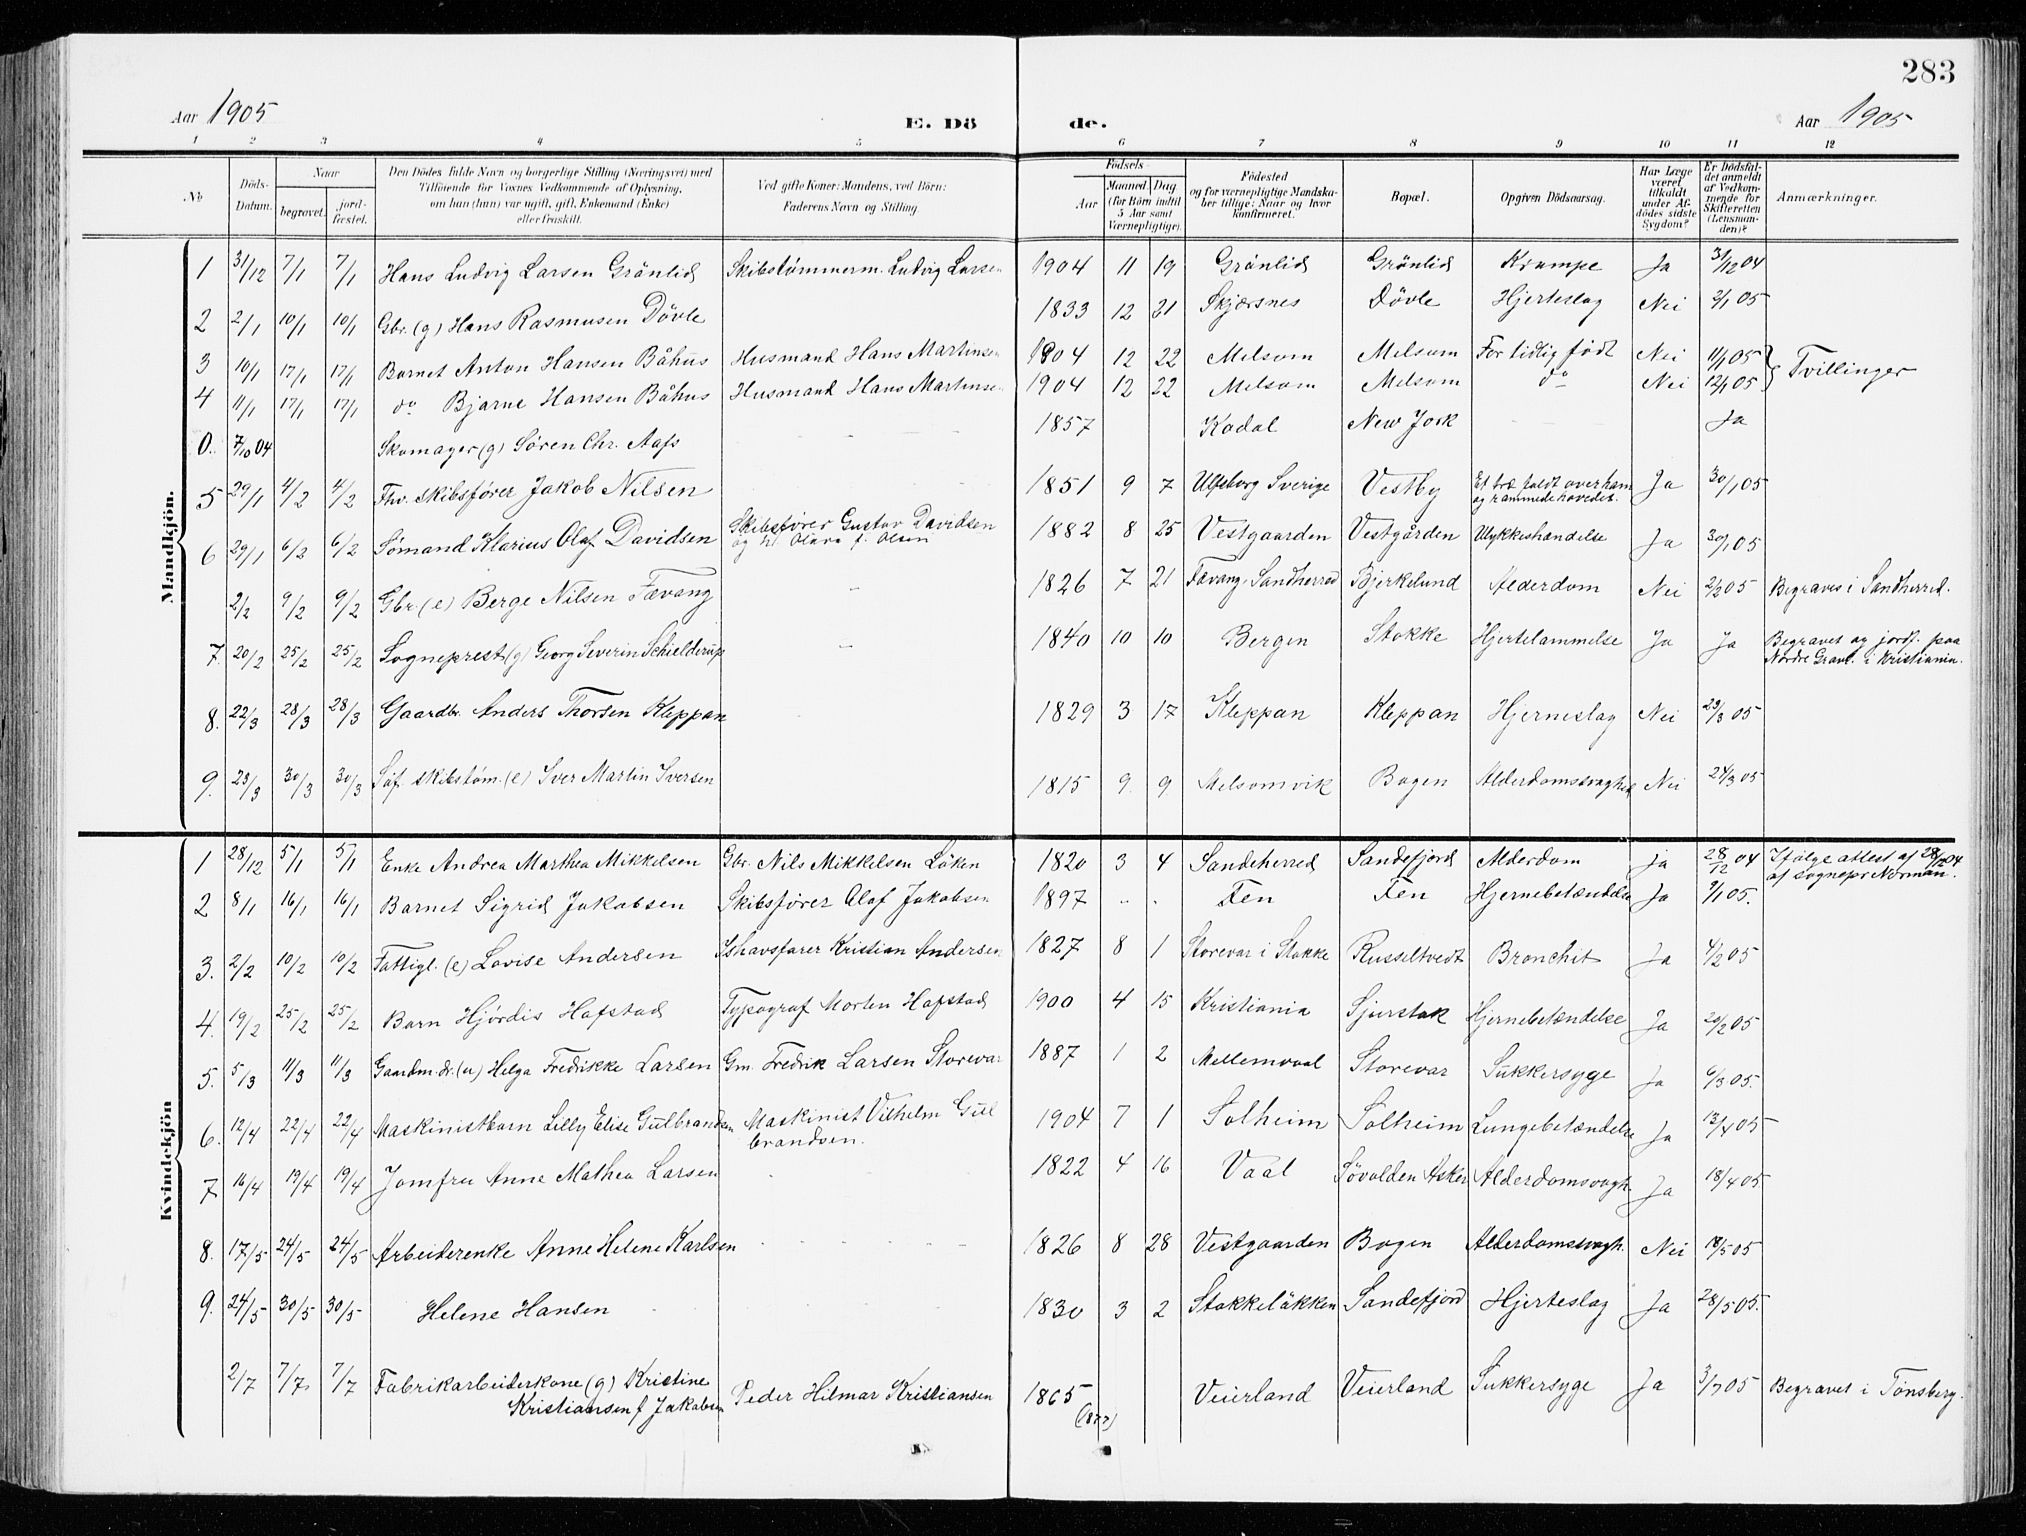 283
Aar 1905
E. Dö de.
Aar 1905
1 2 3 4 5 6 7 8 9 10 11 12
No
Döds-Datum.
Naar
begravet.
jord-festet.
Den Dödes fulde Navn og borgerlige Stilling (Næringsvei) med
Tilföiende for Voxnes Vedkommende af Oplysning,
om han (hun) var ugift, gift, Enkemand (Enke)
eller fraskilt.
Ved gifte Koner: Mandens, ved Börn:
Faderens Navn og Stilling
Födsels-
Aar
Maaned. Dag
(for Börn indtil
5 Aar samt
Værnepligtige).
Födested
og for værnepligtige Mandska-
ber tillige: Naar og hvor
konfirmeret.
Bopæl.
Opgiven Dödsaarsag.
Har Læge
været
tilkaldt
under Af-
dödes sidste
Sygdom?
Er Dödsfal-
det anmeldt
af Vedkom-
mende for
Skifteretten
(Lensman-
den)?
Anmærkninger.
Mandkjön.
1 31/12 7/1 7/1 Hans Ludvig Larsen Grönlid Skibstømmerm. Ludvig Larsen 1904 11 19 Grönlid Grönlid Krampe Ja 31/12 04
2 2/1 10/1 10/1 Gbr. (g) Hans Rasmusen Dövle 1833 12 21 Skjærsnes Dövle Hjerteslag Nei 3/1 05
3 10/1 17/1 17/1 Barnet Anton Hansen Båhus Husmand Hans Martinsen 1904 12 22 Melsom Melsom For tidlig født Nei 11/1 05 Tvillinger
4 11/1 17/1 17/1 do Bjarne Hansen Båhus Husmand Hans Martinsen 1904 12 22 Melsom Melsom do Nei 12/1 05
0. 7/10 04 Skomager (g) Søren Chr. Aafs 1857 Kodal New York Ja
5 29/1 4/2 4/2 Fhv. skibsfører Jakob Nilsen 1851 9 7 Ulfsborg Sverige Vestby Et træ faldt over ham
og rammede hovedet. Ja 30/1 05
6 29/1 6/2 6/2 Sømand Klarius Olaf Davidsen Skibsfører Gustav Davidsen
og h. Olava f. Olsen 1882 8 25 Vestgaarden Vestgården Ulykkeshændelse Ja 30/1 05
2/2 9/2 9/2 Gbr. (e) Berge Nilsen Fævang 1826 7 21 Fævang, Sandherred Bjerkelund Alderdom Nei 2/2 05 Begraves i Sandherred.
7. 20/2 25/2 25/2 Sogneprest (g) Georg Severin Schielderup 1840 10 10 Bergen Stokke Hjertelammelse Ja Ja Begravet og jordf. paa
Nordre Gravl. i Kristiania.
8. 22/3 28/3 28/3 Gaardbr. Anders Thorsen Kleppan 1829 3 17 Kleppan Kleppan Hjerneslag Nei 23/3 05
9. 23/3 30/3 30/3 skibstøm. (e) Iver Martin Iversen 1815 9 9 Melsomvik Bogen Alderdomssvaghed Nei 24/3 05
Kvindekjön
1 28/12 5/1 5/1 Enke Andrea Marthea Mikkelsen Gbr. Nils Mikkelsen Løken 1820 3 4 Sandeherred Sandefjord Alderdom Ja 28/12 04 Ifølge attest af 28/12 04
af sognepr Norman.
2 8/1 16/1 16/1 Barnet Sigrid Jakobsen Skibsfører Olaf Jakobsen 1897 Fen Fen Hjernebetændelse Ja 9/1 05.
3. 2/2 10/2 10/2 Fattigl. (e) Lovise Andersen Ishavsfarer Kristian Andersen 1827 8 1 Storevar i Stokke Russeltvedt Bronchit Ja 4/2 05
4. 19/2 25/2 25/2 Barn Hjørdis Hafstad Typograf Morten Hafstad 1900 4 15 Kristiania Sjuestok Hjernebetændelse Ja 20/2 05
5. 5/3 11/3 11/3 Gaardm. dr. (u) Helga Fredrikke Larsen Gm. Fredrik Larsen Storevar 1887 1 2 Mellemvaal Storevar Sukkersyge Ja 6/3 05.
6. 12/4 22/4 22/4 Maskinistbarn Lilly Elise Gulbrandsen Maskinist Vilhelm Gul
brandsen. 1904 7 1 Solheim Solheim Lungebetændelse Ja 13/4 05
7 16/4 19/4 19/4 Jomfru Anne Mathea Larsen 1822 4 16 Vaal Søvolden Asker Alderdomsvagh. Ja 18/4 05
8. 17/5 24/5 24/5 Arbeiderenke Anne Helene Karlsen 1826 8 28 Vestgaarden Bogen Alderdomssvagh. Nei 18/5 05
9. 24/5 30/5 30/5 Helene Hansen 1830 3 2 Stokkeløkken Sandefjord Hjerteslag Ja 28/5 05.
2/7 7/7 7/7 Fabrikarbeiderkone (g) Kristine
Kristiansen f Jakobsen Peder Hilmar Kristiansen 1865 Veierland Veierland Sukkersyge Ja 3/7 05 Begravet i Tönsberg.